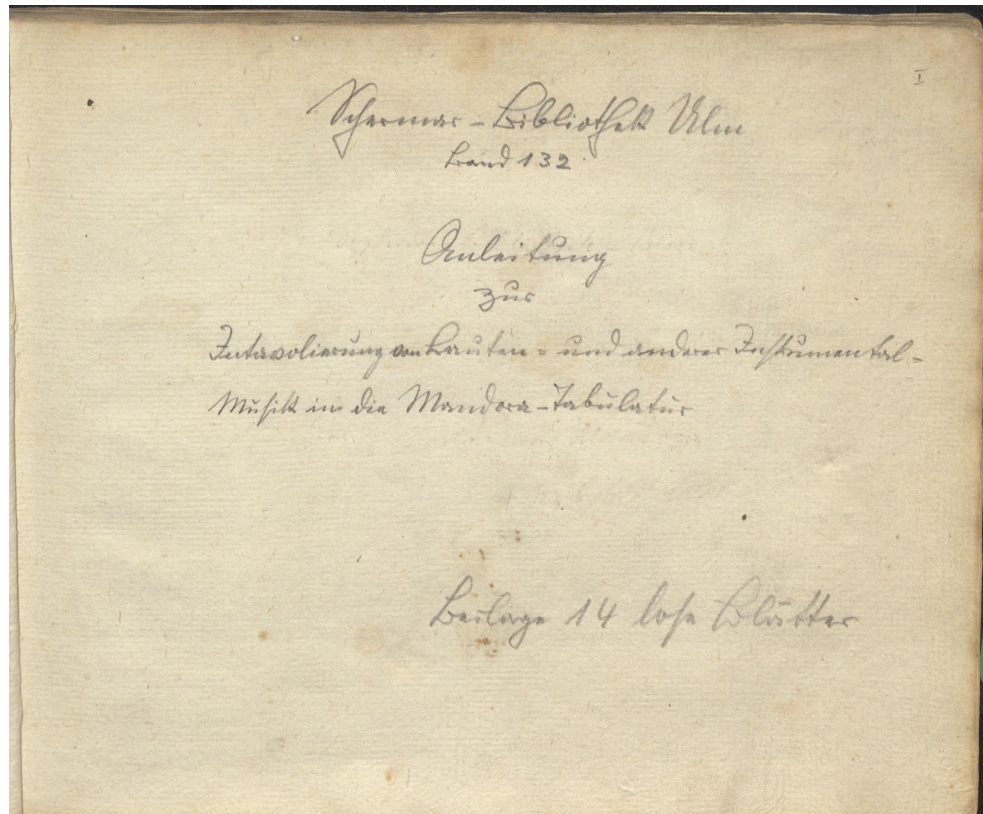 I
Schermar-Bibliothek Ulm
Band 132.
Anleitung
zur
Intavolierung von Lauten= und anderer Instrumental-
Musik in die Mandora-Tabulatur
Beilage 14 lose Blätter